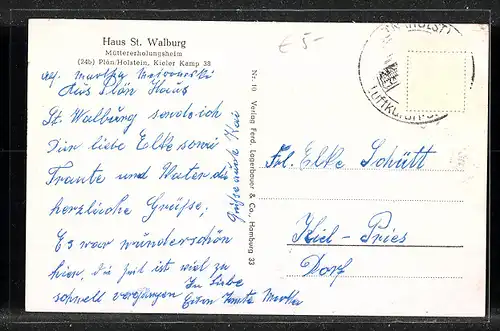 Haus St. Walburg
Müttererholungsheim
(24b) Plön/Holstein, Kieler Kamp 38
Abs. Martha
Aus Plön Haus
St. Walburg sende ich
Dir liebe Elke sowie
Traute und Vater die
herzliche Grüße,
Es war wunderschön
hier, die Zeit ist viel zu
schnell vergangen
In Liebe
Eure Tante Martha
Grüße auch Kai
Nr. 10 Verlag Ferd. Lagerbauer & Co., Hamburg 33
£ 5-
(HOLST)
Luftkurort
Frl. Elke Schütt
Kiel-Pries
Dorf